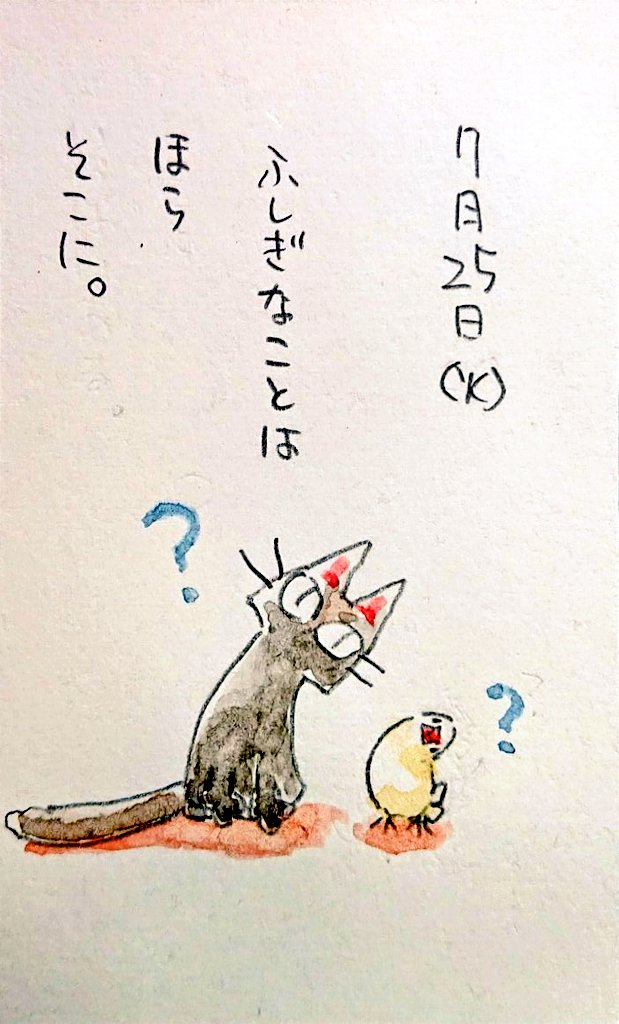 7月25日(火)
ふしぎなことは
ほら
そこに。
?
?